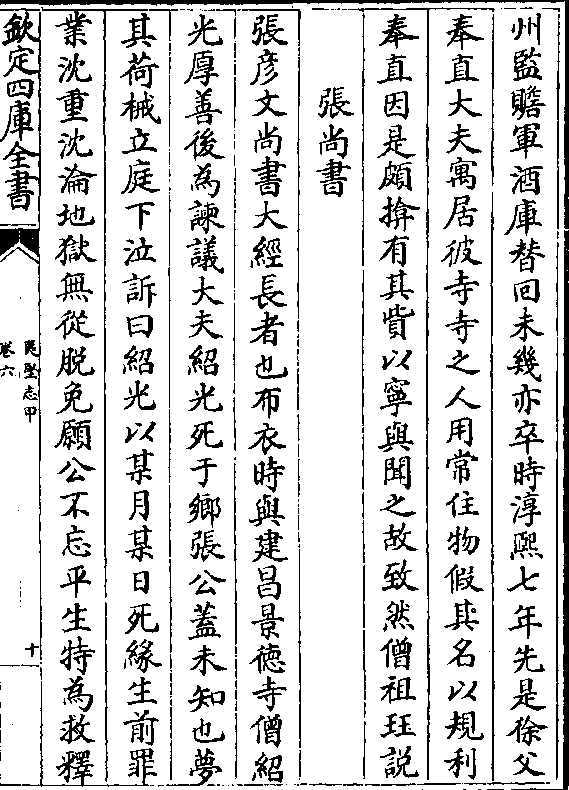 州監贍軍酒庫替回未幾亦卒時淳熙七年先是徐父
奉直大夫寓居彼寺寺之人用常住物假其名以規利
奉直因是頗揜有其貲以寧與聞之故致然僧祖珏説
張尚書
張彦文尚書大經長者也布衣時與建昌景徳寺僧紹
光厚善後為諫議大夫紹光死于鄉張公蓋未知也夢
其荷械立庭下泣訴曰紹光以某月某日死緣生前罪
業沈重沈淪地獄無從脱免願公不忘平生特為救釋
欽定四庫全書
夷堅志甲
卷六
十